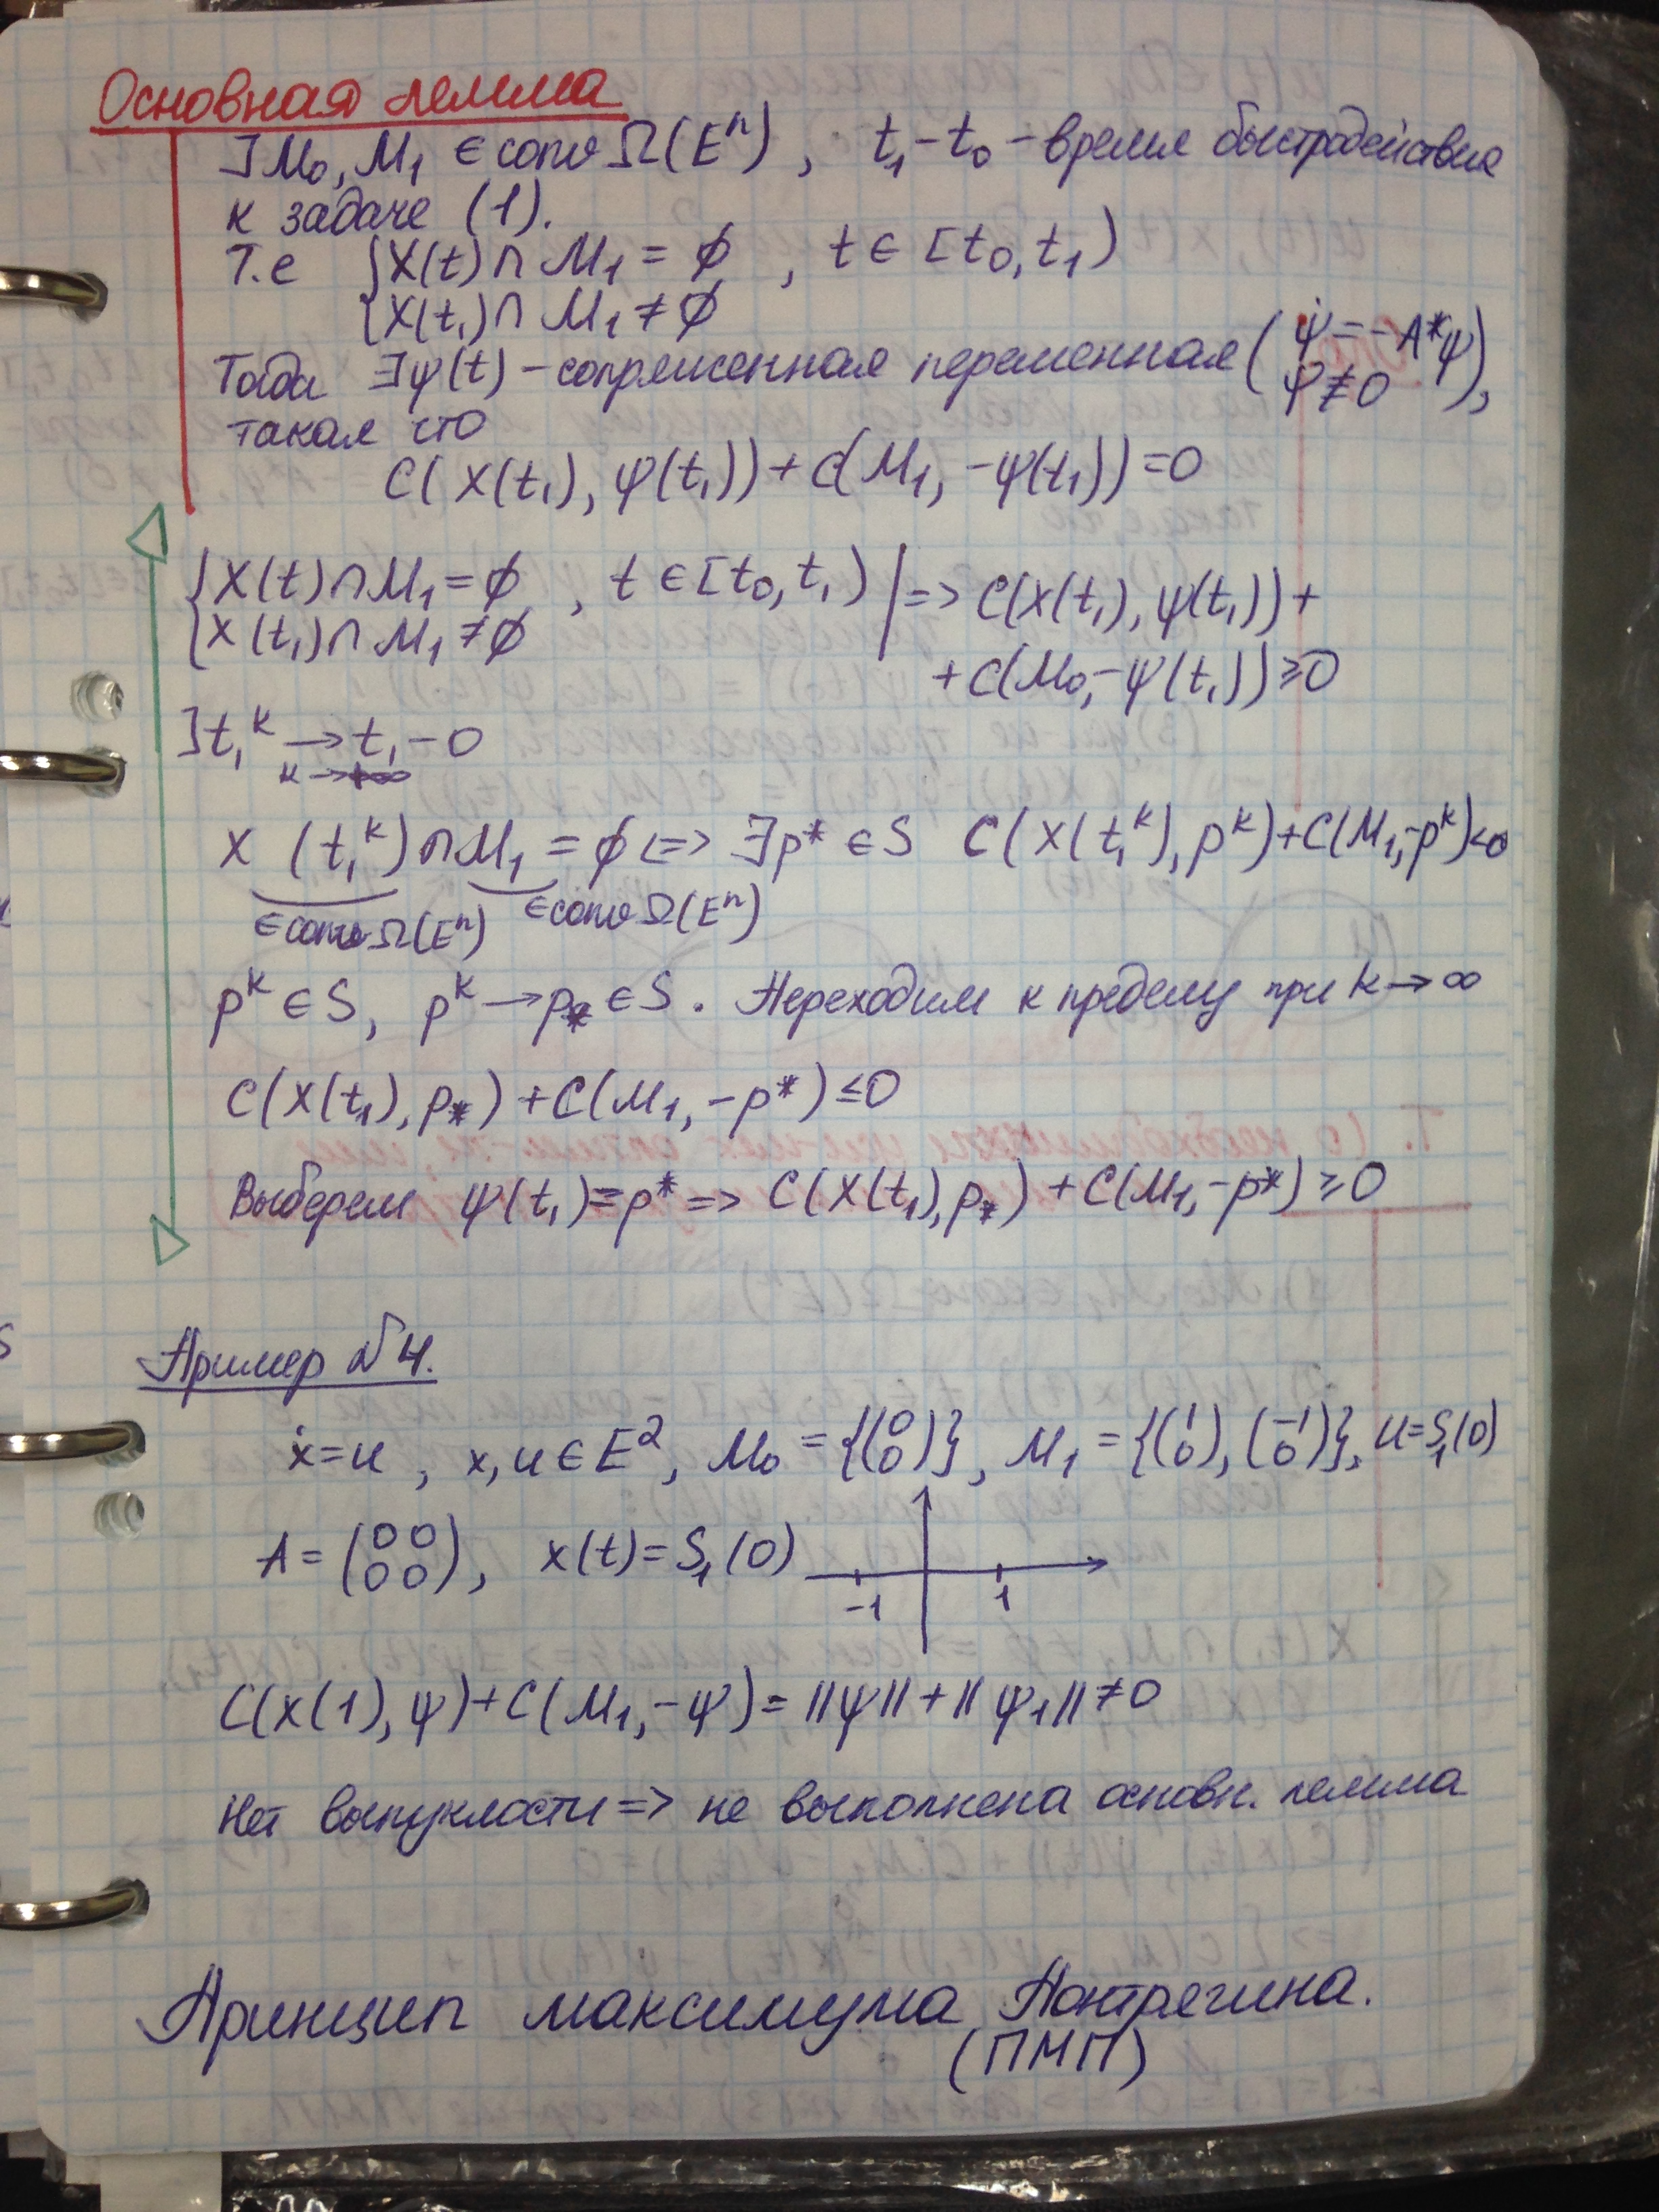 Основная лемма
∃ M₀, M₁ ∈ conv Ω(Eⁿ), t₁-t₀ - время быстродействия
к задаче (1).
Т.е { X(t) ∩ M₁ = ∅ , t ∈ [t₀, t₁)
{ X(t₁) ∩ M₁ ≠ ∅
Тогда ∃ψ(t) - сопряженная переменная ( ψ̇ = -A*ψ
ψ ≠ 0 ),
такая что
C(X(t₁), ψ(t₁)) + C(M₁, -ψ(t₁)) = 0
{ X(t) ∩ M₁ = ∅ , t ∈ [t₀, t₁) | => C(X(t₁), ψ(t₁)) +
{ X(t₁) ∩ M₁ ≠ ∅
+ C(M₀, -ψ(t₁)) ≥ 0
∃ t₁ᵏ → t₁ - 0
k→+∞
X (t₁ᵏ) ∩ M₁ = ∅ <=> ∃p* ∈ S C(X(t₁ᵏ), pᵏ) + C(M₁, -pᵏ) < 0
∈ conv Ω(Eⁿ) ∈ conv Ω(Eⁿ)
pᵏ ∈ S, pᵏ → p* ∈ S. Переходим к пределу при k → ∞
C(X(t₁), p*) + C(M₁, -p*) ≤ 0
Выберем ψ(t₁) = p* => C(X(t₁), p*) + C(M₁, -p*) ≥ 0
Пример №4.
ẋ = u , x, u ∈ E², M₀ = {(0 0)}, M₁ = {(1 0), (-1 0)}, U = S₁(0)
A = (0 0 0 0), X(t) = S₁(0)
-1 1
C(X(1), ψ) + C(M₁, -ψ) = ||ψ|| + ||ψ₁|| ≠ 0
Нет выпуклости => не выполнена основн. лемма
Принцип максимума Понтрягина.
(ПМП)